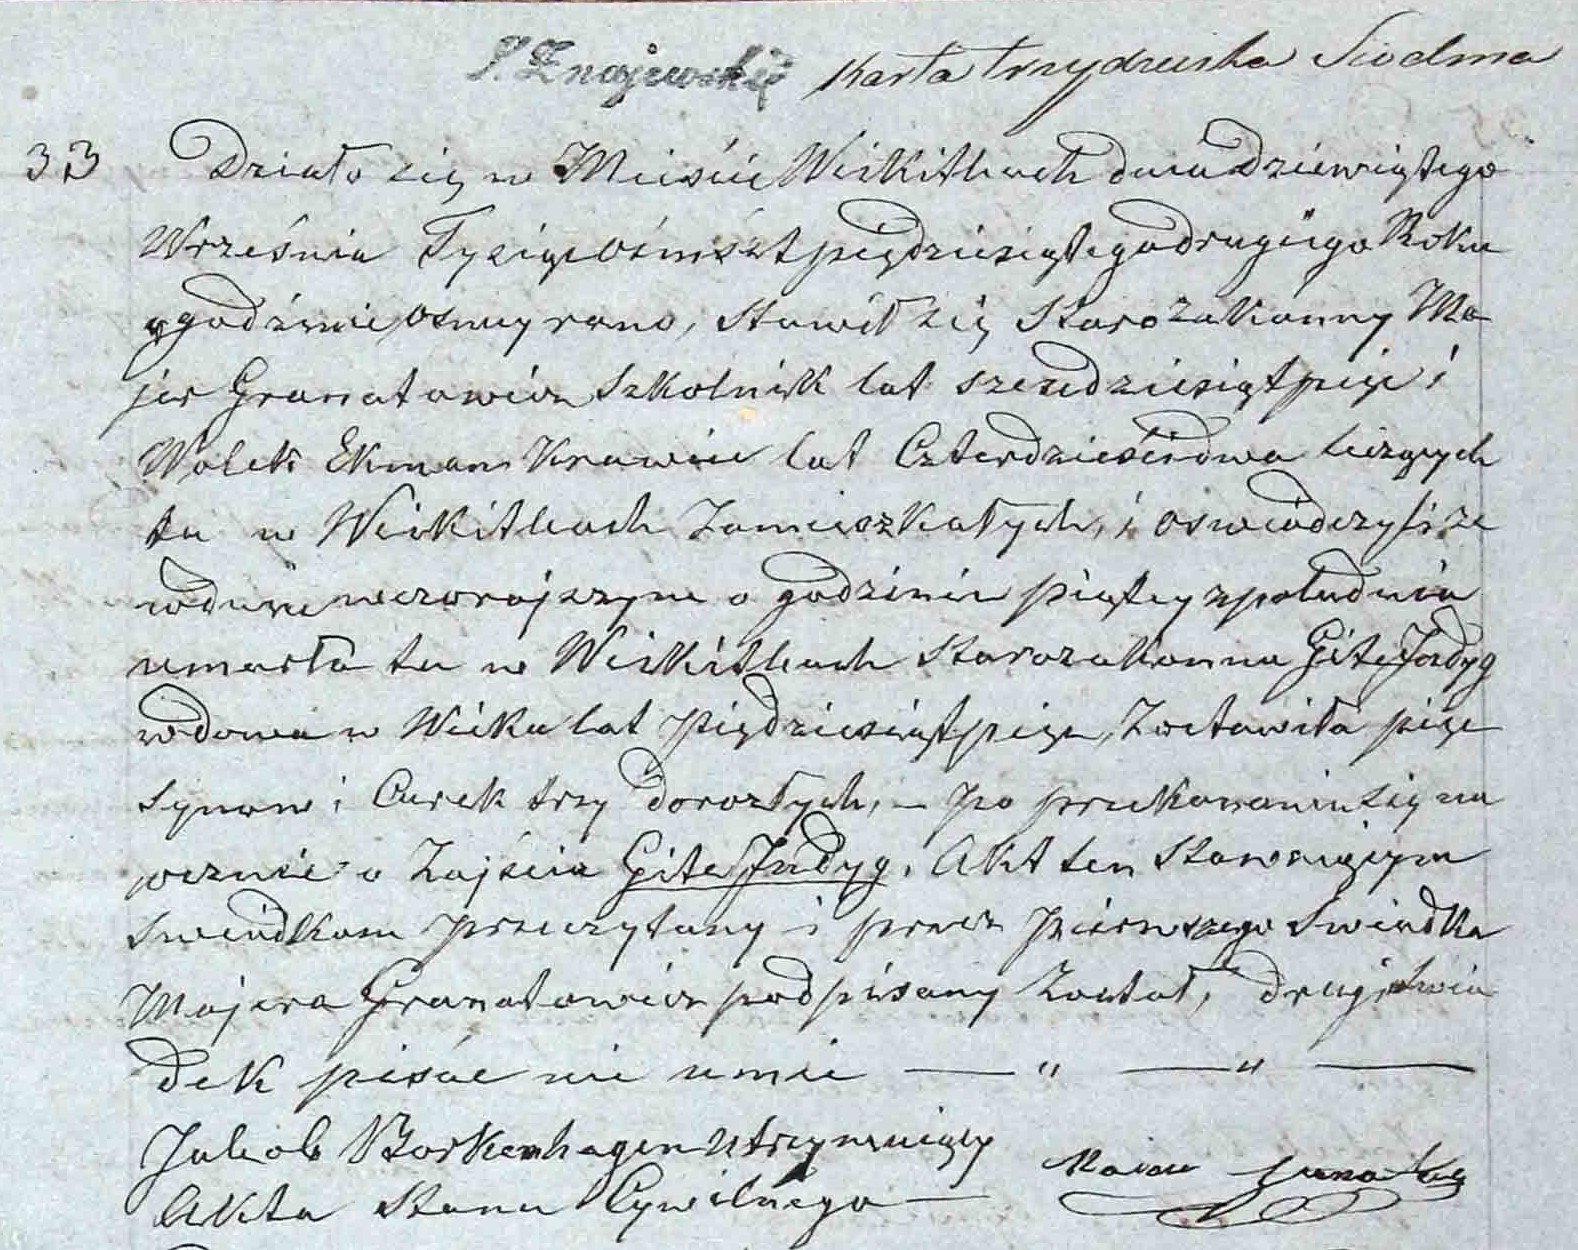 S. Znajewski Karta trzydziesta Siodma
33 Działo się w Mieście Wiskitkach dnia dziewiątego
Września Tysiąc ośmset pięćdziesiątego drugiego Roku
o godzinie osmey rano, stawił się Starozakonny Ma
jer Granatowicz Szkolnik lat szesćdziesiąt pięć i
Wolek Ekman Krawiec lat Czterdzieści dwa liczących
tu w Wiskitkach Zamieszkałych, i oswiadczyli ze
w dniu wczorajszym o godzinie piątey z południa
umarła tu w Wiskitkach Starozakonna Gite Jndyg
wdowa w Wieku lat Pięćdziesiąt pięć, Zostawiła pięć
synow i Curek trzy dorosłych, – po przekonaniu się na
ocznie o Zejściu Gite Jndyg. Akt ten Stawaiącym
swiadkom przeczytany i przez pierwszego Swiadka
Majera Granatowicz podpisany Został, drugi swia
dek pisać nie umie — " — " —
Jakob Borkenhagen utrzymuiący
Akta Stanu Cywilnego —